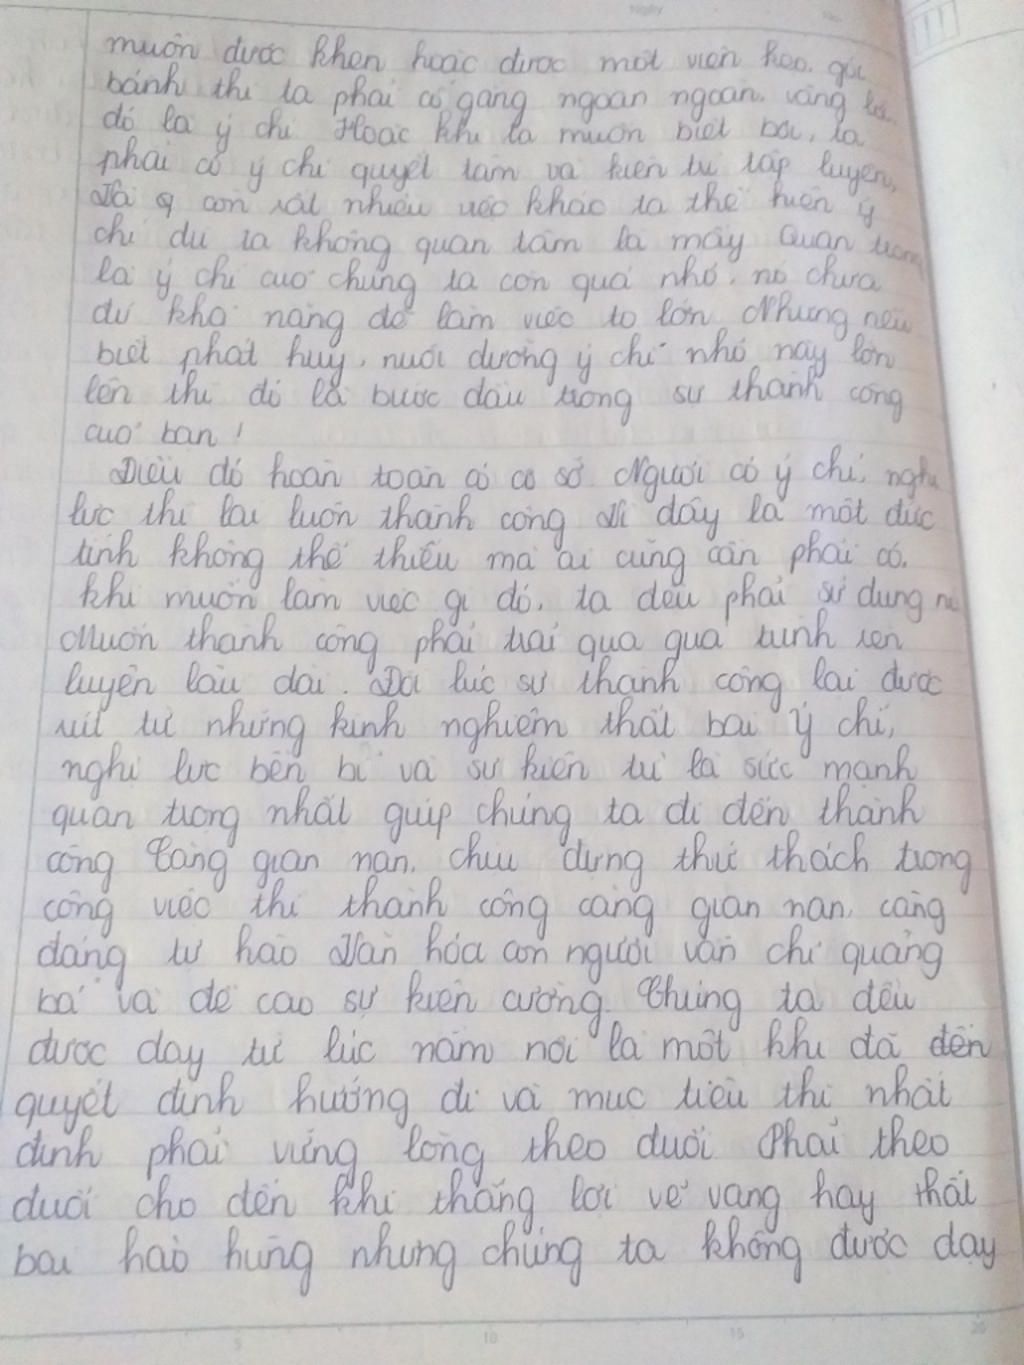 muốn được khen hoặc được một viên kẹo, gói
bánh thì ta phải cố gắng ngoan ngoãn, vâng lời
đó là ý chí. Hoặc khi ta muốn biết bơi, ta
phải có ý chí quyết tâm và kiên trì tập luyện,
Và còn rất nhiều việc khác ta thể hiện ý
chí dù ta không quan tâm là mấy. Quan trọng
là ý chí của chúng ta còn quá nhỏ, nó chưa
đủ khả năng để làm việc to lớn. Nhưng nếu
biết phát huy, nuôi dưỡng ý chí nhỏ này lớn
lên thì đó là bước đầu trong sự thành công
của bạn!
Điều đó hoàn toàn có cơ sở. Người có ý chí, nghị
lực thì lại luôn thành công. Vì đây là một đức
tính không thể thiếu mà ai cũng cần phải có.
khi muốn làm việc gì đó, ta đều phải sử dụng nó
Muốn thành công phải trải qua quá trình rèn
luyện lâu dài. Đôi lúc sự thành công lại được
rút từ những kinh nghiệm thất bại. Ý chí,
nghị lực bền bỉ và sự kiên trì là sức mạnh
quan trọng nhất giúp chúng ta đi đến thành
công. Càng gian nan, chịu đựng thử thách trong
công việc thì thành công càng gian nan, càng
đáng tự hào. Văn hóa con người vẫn chỉ quảng
bá và đề cao sự kiên cường. Chúng ta đều
được dạy từ lúc nằm nôi là một khi đã đến
quyết định hướng đi và mục tiêu thì nhất
định phải vững lòng theo đuổi. Phải theo
đuổi cho đến khi thắng lợi vẻ vang hay thất
bại hào hùng nhưng chúng ta không được dạy
5 10 15 20